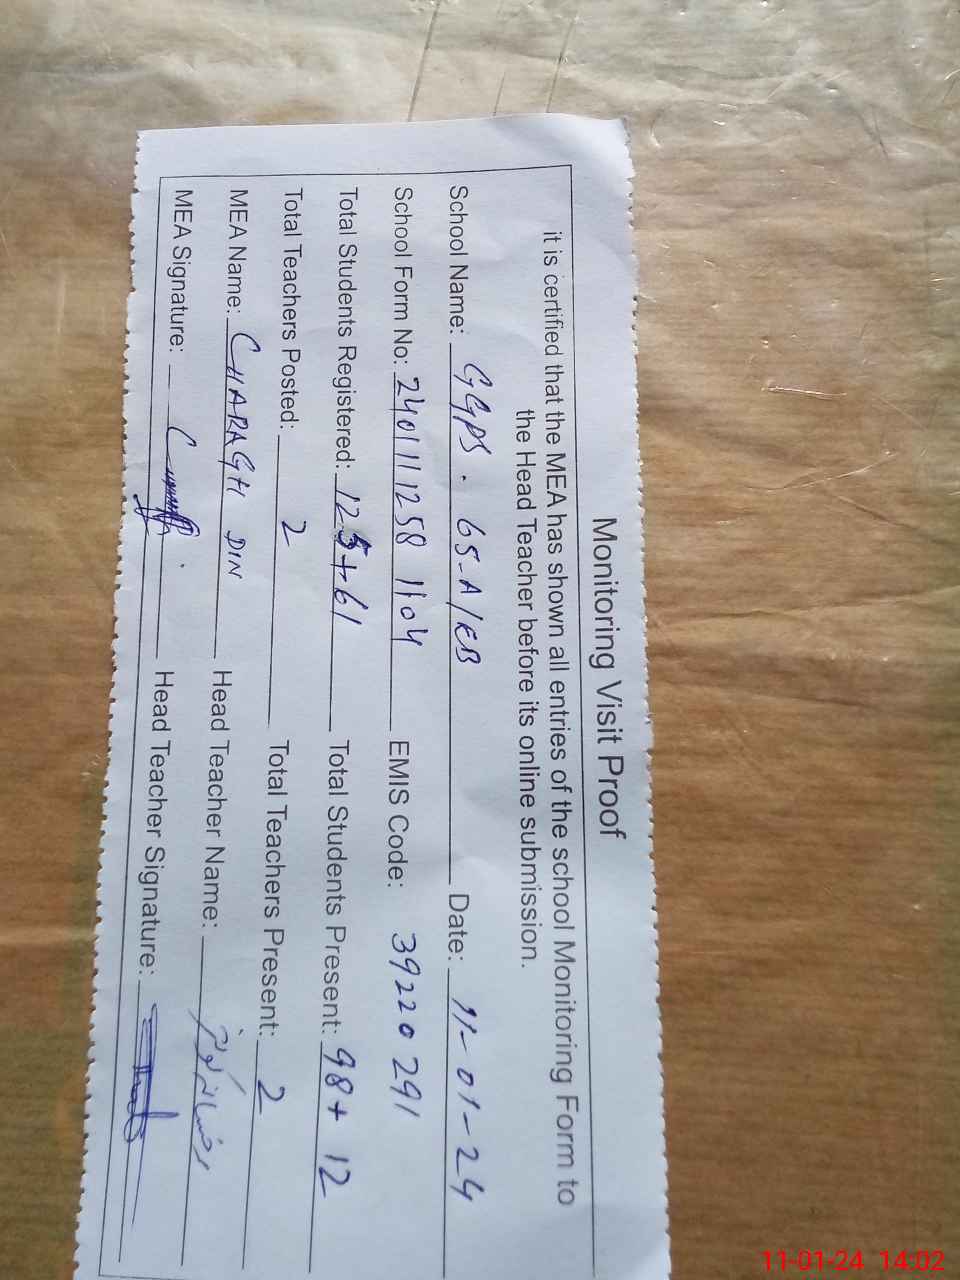 Monitoring Visit Proof
it is certified that the MEA has shown all entries of the school Monitoring Form to
the Head Teacher before its online submission.
School Name: GGPS. 65-A/EB Date: 11-01-24
School Form No: 2401112581104 EMIS Code: 39220291
Total Students Registered: 125+61 Total Students Present: 98+12
Total Teachers Posted: 2 Total Teachers Present: 2
MEA Name: CHARAGH DIN Head Teacher Name:
MEA Signature: Head Teacher Signature:
11-01-24 14:02